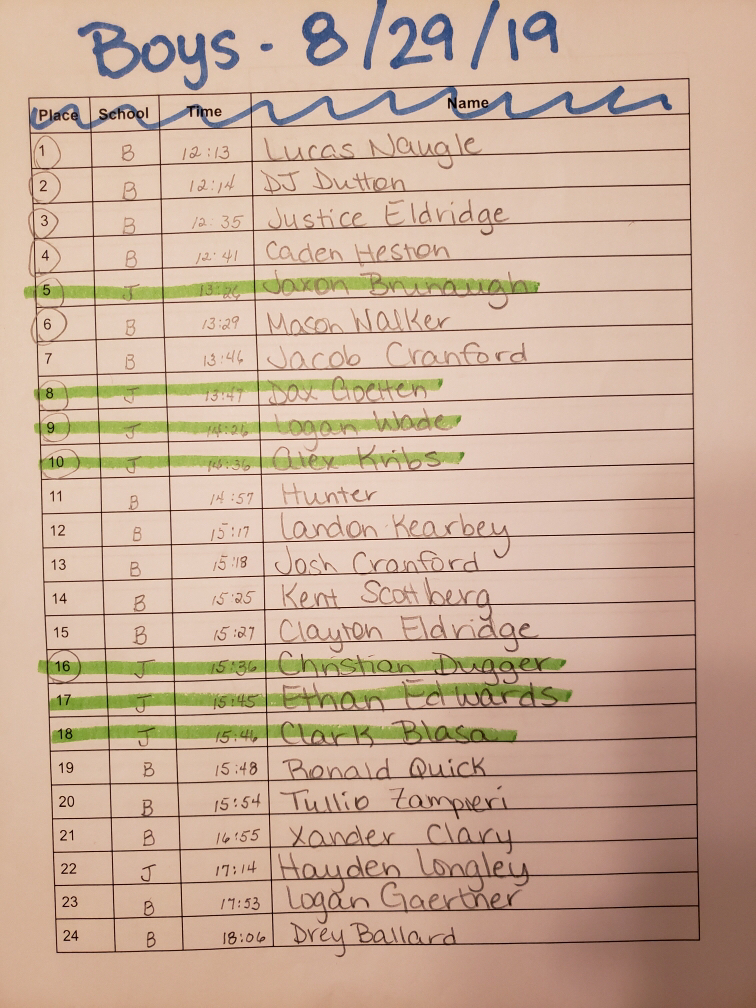 Boys - 8/29/19
Place School Time Name
1 B 12:13 Lucas Naugle
2 B 12:14 DJ Dutton
3 B 12:35 Justice Eldridge
4 B 12:41 Caden Heston
5 J 13:26 Jaxon Brunaugh
6 B 13:29 Mason Walker
7 B 13:46 Jacob Cranford
8 J 13:47 Dax Goetten
9 J 14:26 Logan Wade
10 J 14:36 Alex Kribs
11 B 14:57 Hunter
12 B 15:17 Landon Kearbey
13 B 15:18 Josh Cranford
14 B 15:25 Kent Scottberg
15 B 15:27 Clayton Eldridge
16 J 15:36 Christian Dugger
17 J 15:45 Ethan Edwards
18 J 15:46 Clark Blasa
19 B 15:48 Ronald Quick
20 B 15:54 Tullio Zampieri
21 B 16:55 Xander Clary
22 J 17:14 Hayden Longley
23 B 17:53 Logan Gaertner
24 B 18:06 Drey Ballard